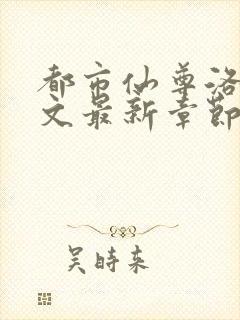 都市仙尊洛
文最新章節
吴時来